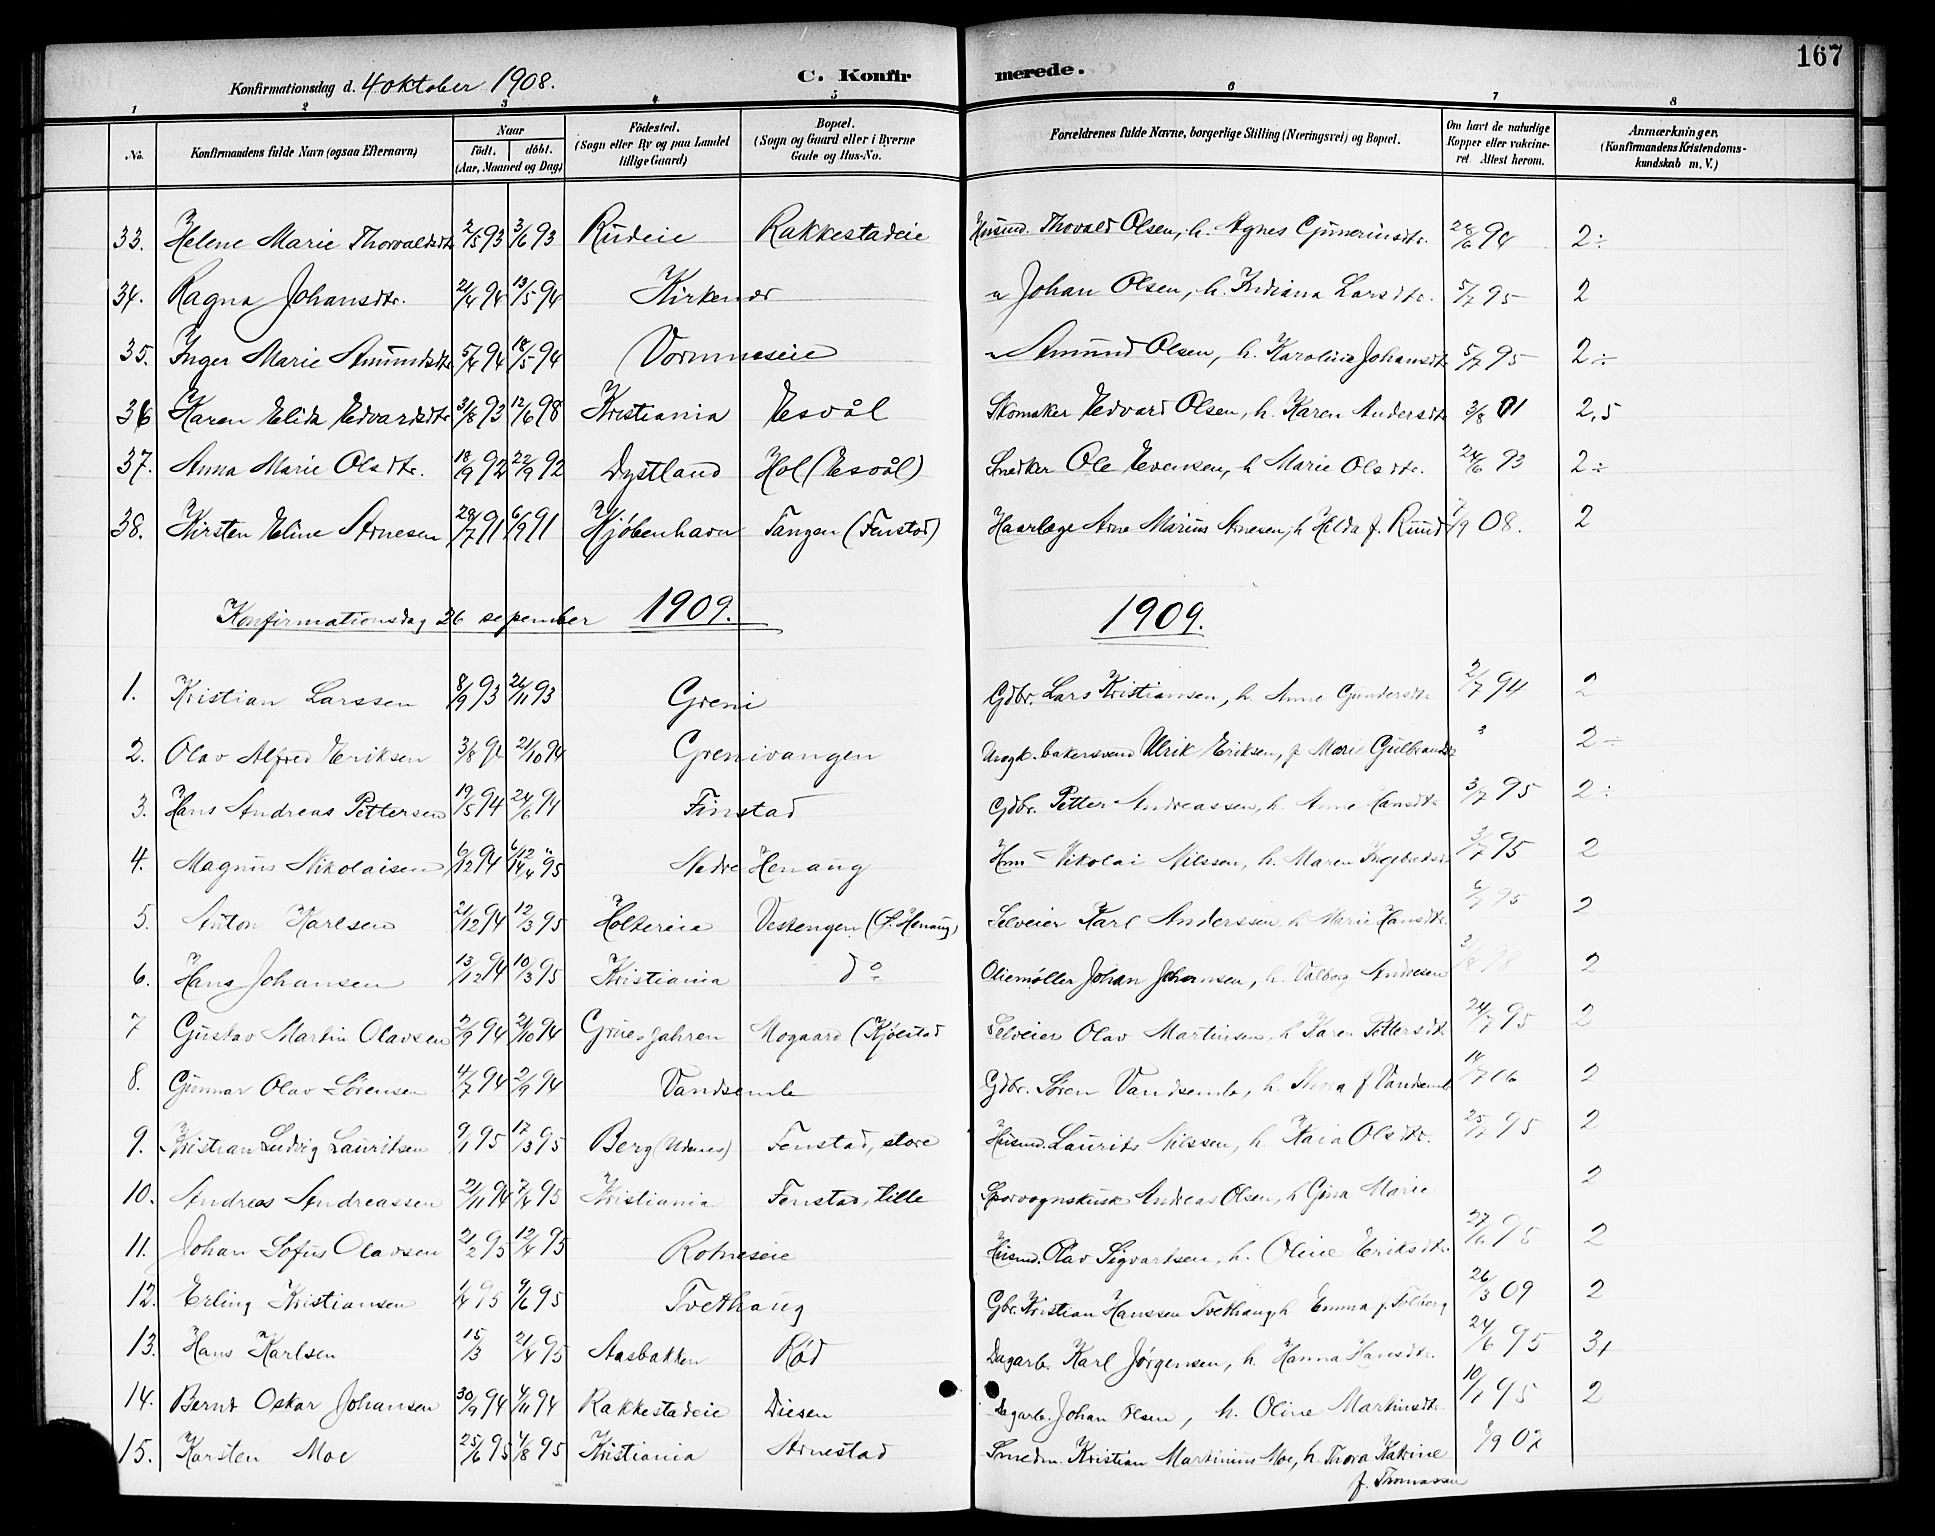 167
Konfirmationsdag d. 4 oktober 1908. C. Konfir merede.
1 2 3 4 5 6 7 8
No. Konfirmandens fulde Navn (ogsaa Efternavn) Naar født. døbt. (Aar, Maaned og Dag) Fødested. (Sogn eller By og paa Landet tillige Gaard) Bopæl. (Sogn og Gaard eller i Byerne Gade og Hus-No. Forældrenes fulde Navne, borgerlige Stilling (Næringsvei) og Bopæl. Om havt de naturlige Kopper eller vakcineret. Attest herom. Anmærkninger. (Konfirmandens Kristendomskundskab m. V.)
33. Helene Marie Thorvaldsdtr 2/5 93 3/6 93 Rudeie Rakkestadeie Husmd. Thovald Olsen, h. Agnes Guneriusdtr. 28/6 94 2÷
34. Ragna Johansdtr. 21/4 94 13/5 94 Kirkenær " Johan Olsen, h. Indiana Larsdtr. 5/7 95 2
35. Inger Marie Amundsdtr 5/4 94 18/5 94 Vormneseie " Amund Olsen, h. Karoline Johansdtr 5/7 95 2÷
36 Karen Elida Edvardsdtr 31/8 93 12/6 98 Kristiania Esvål Skomaker Edvard Olsen, h. Karen Andersdtr 3/8 01 2,5
37. Anna Marie Olsdtr. 18/9 92 22/9 92 Dystland Hol (Esvål) Snedker Ole Evensen, h Marie Olsdtr. 24/6 93 2÷
38. Kirsten Eline Arnesen 28/7 91 6/9 91 Kjøbenhavn Tangen (Fenstad) Haarlæge Arne Marius Arnesen, h Hilda f. Ruud 7/9 08. 2
Konfirmationsdag 26 sepember 1909. 1909.
1. Kristian Larssen 8/9 93 26/11 93 Greni Gdbr. Lars Kristiansen, h. Anne Gundersdtr 2/7 94 2
2. Olav Alfred Eriksen 3/8 94 21/10 94 Grenivangen Uægt. bakersvend Ulrik Eriksen, p Marie Gulbrandsdtr 2÷
3. Hans Andreas Pettersen 19/5 94 24/6 94 Finstad Gdbr. Petter Andreassen, h. Anne Hansdtr 3/7 95 2÷
4. Magnus Nikolaisen 6/12 94 Nedre Henaug Nikolai Nilssen, h. Maren 3/7 95 2
5. Anton Karlsen 21/12 94 12/3 95 Holtereie Vestengen Selveier Karl Anderssen, h Marie Hansdtr. 6/7 95 2
6. Hans Johansen 13/12 94 10/3 95 Kristiania do Oliemøller Johan Johansen, h. Valborg Andresen 2
7 Gustav Martin Olavsen 2/9 94 21/10 94 Grue Jahren Mogaard (Kjølstad Selveier Olav Martinsen, h Karen Pettersdtr 24/7 95 2
8. Gunnar Olav Sørensen 4/7 94 2/9 94 Vandsemb Gdbr. Søren Vandsemb, h. Thora f Vandsemb 14/7 06 2
9. Kristian Ludvig Lauritsen 9/1 95 17/3 95 Berg (Udenes) Fenstad, store Husmd. Laurits Nilssen, h. Kaia Olsdtr. 25/7 95 2
10. Andreas Andreassen 2/11 94 7/4 95 Kristiania Fenstad, lille Sporvognskusk Andreas Olsen, h Gina Marie 2
11. Johan Sofus Olavsen 21/2 95 12/4 95 Rotneseie Husmd. Olav Sigvartsen, h. Oline Eriksdtr. 27/6 95 2
12. Erling Kristiansen 1/4 95 9/6 95 Tvethaug Gbr. Kristian Hanssen Tvethaug h Emma f. Solberg 26/3 09 2
13. Hans Karlsen 15/3 21/4 95 Aasbakken Rød Dagarb. Karl Jørgensen, h. Hanna Hansdtr. 24/6 95 3+
14. Bernt Oskar Johansen 30/9 94 4/11 94 Rakkestadeie Diesen Dagarb. Johan Olsen, h. Oline Martinsdtr. 10/7 95 2
15. Karsten Moe 25/6 95 4/8 95 Kristiania Arnestad Smedm. Kristian Martinius Moe, h. Thora Katrine f. Thomassen 6/9 07